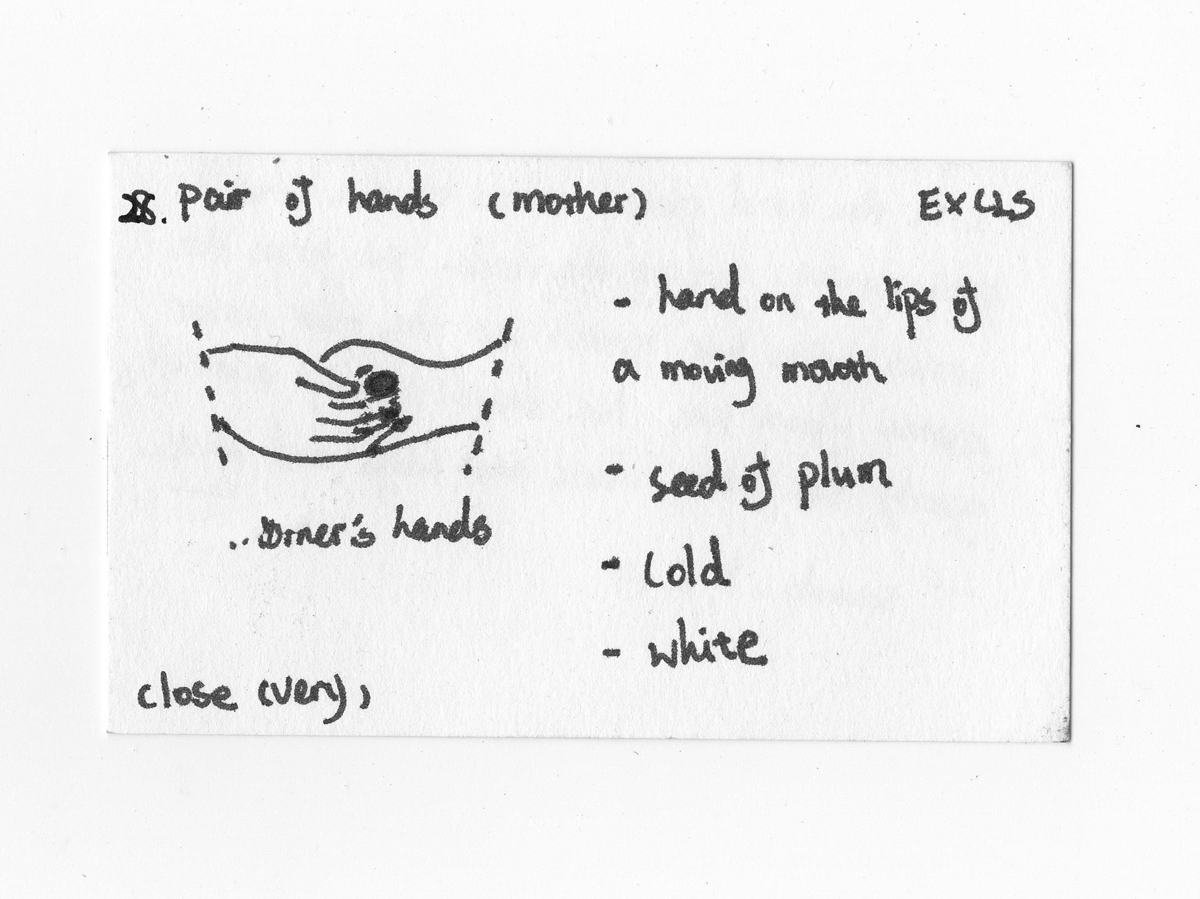 28. pair of hands (mother)
EX CLS
- hand on the lips of
a moving mouth
- seed of plum
- cold
- white
hands
close (very)